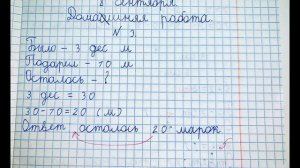 8 сентября.
Домашняя работа.
№ 3.
Было – 3 дес м
Подарил – 10 м
Осталось – ?
3 дес = 30
30-10=20 (м)
Ответ осталось 20 марок